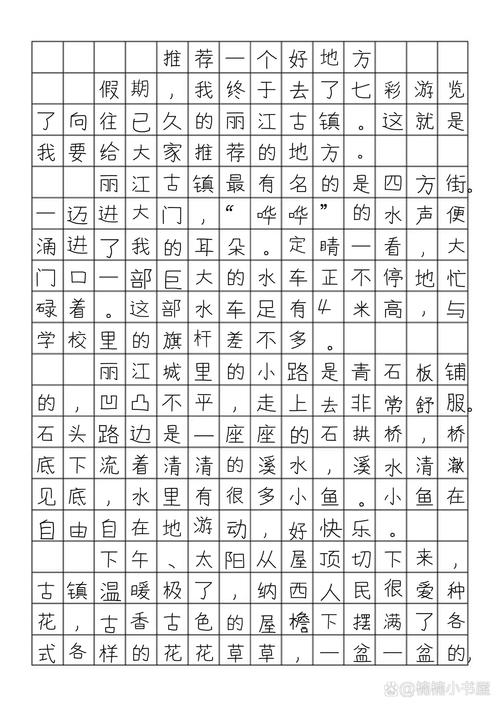 推荐一个好地方
假期，我终于去了七彩游览
了向往己久的丽江古镇。这就是
我要给大家推荐的地方。
丽江古镇最有名的是四方街。
一迈进大门，“哗哗”的水声便
涌进了我的耳朵。定睛一看，大
门口一部巨大的水车正不停地忙
碌着。这部水车足有4米高，与
学校里的旗杆差不多。
丽江城里的小路是青石板铺
的，凹凸不平，走上去非常舒服。
石头路边是一座座的石拱桥，桥
底下流着清清的溪水，溪水清澈
见底，水里有很多小鱼。小鱼在
自由自在地游动，好快乐。
下午、太阳从屋顶切下来，
古镇温暖极了，纳西人民很爱种
花，古香古色的屋檐下摆满了各
式各样的花花草草，一盆一盆的，
@楠楠小书屋